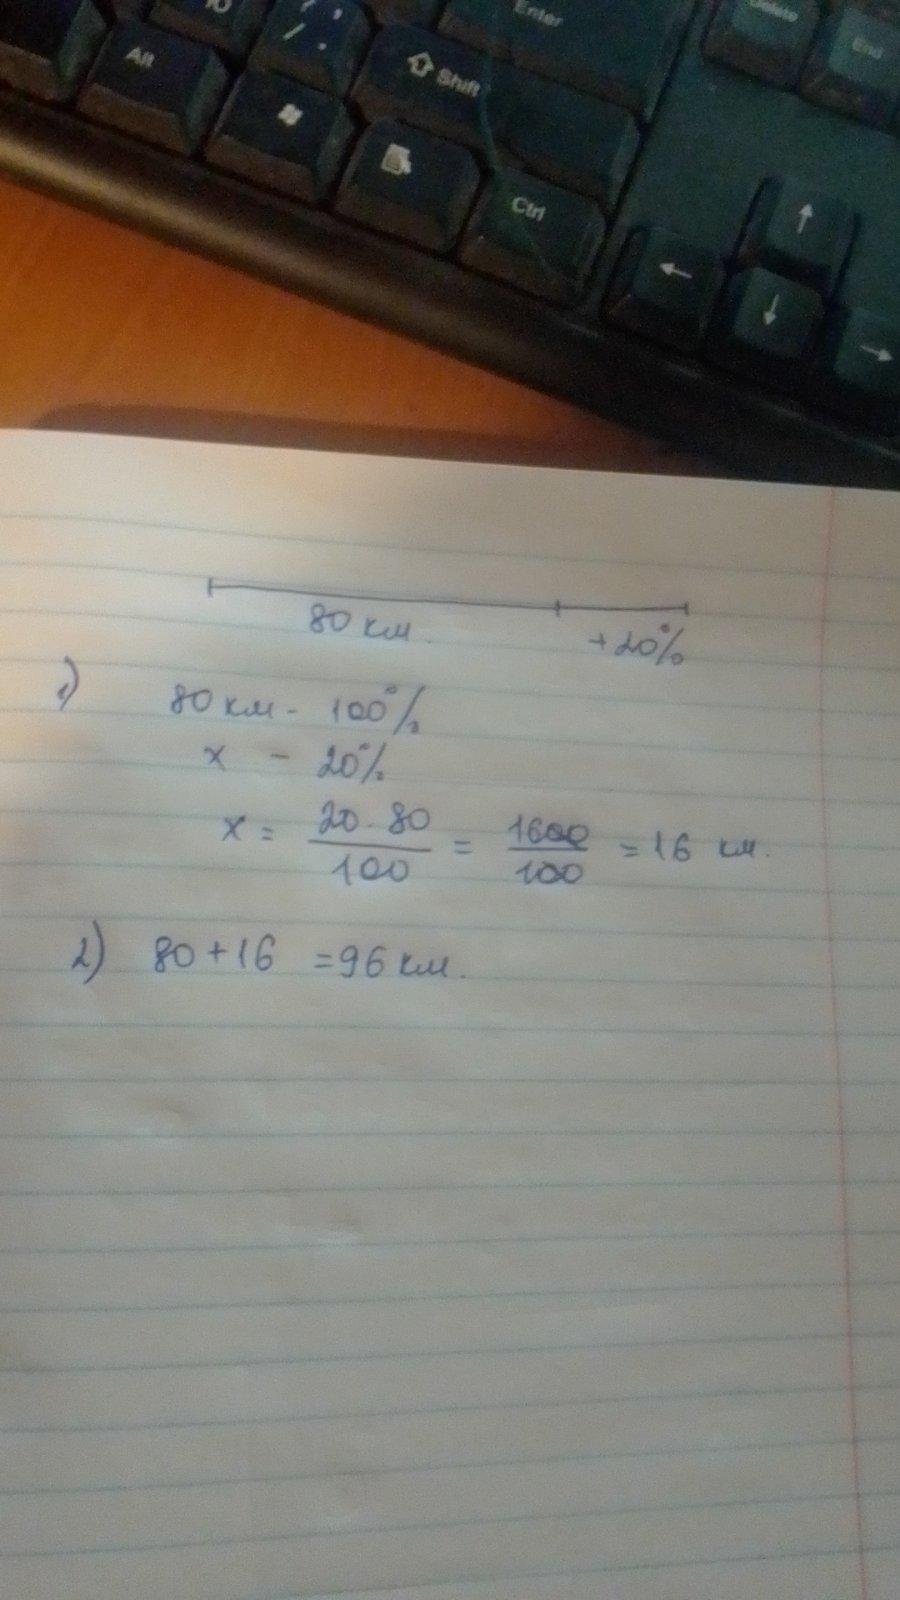 Enter
Delete
End
Alt
Shift
Ctrl
80 км.
+20%
1) 80 км - 100%
x - 20%
x = 20·80/100 = 1600/100 = 16 км.
2) 80+16 = 96 км.